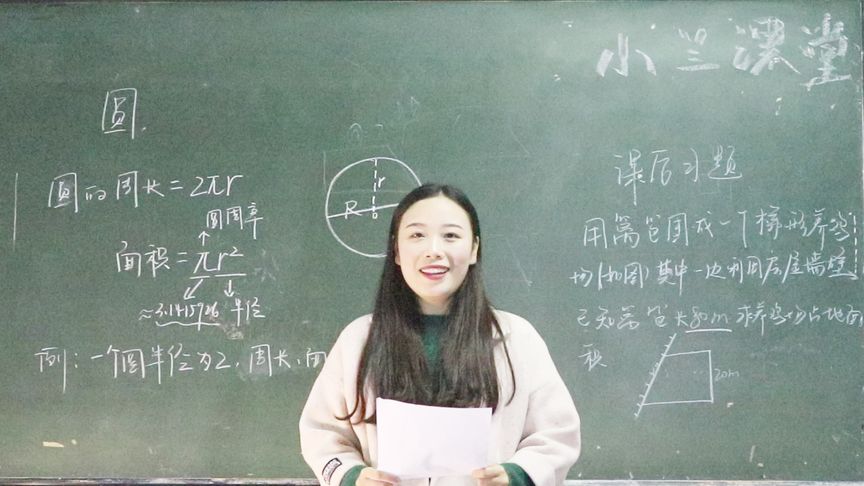 小兰课堂
圆
圆的周长=2πr
圆周率
面积=πr²
≈3.1415926 半径
例:一个圆半径为2,周长、面
r
R
课后习题
用篱笆围成一个梯形养鸡
场(如图)其中一边利用房屋墙壁
已知篱笆长80m 求养鸡场占地面
积
20m